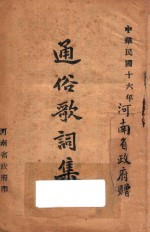 中華民國十六年河南省政府贈
通俗歌詞集
河南省政府印